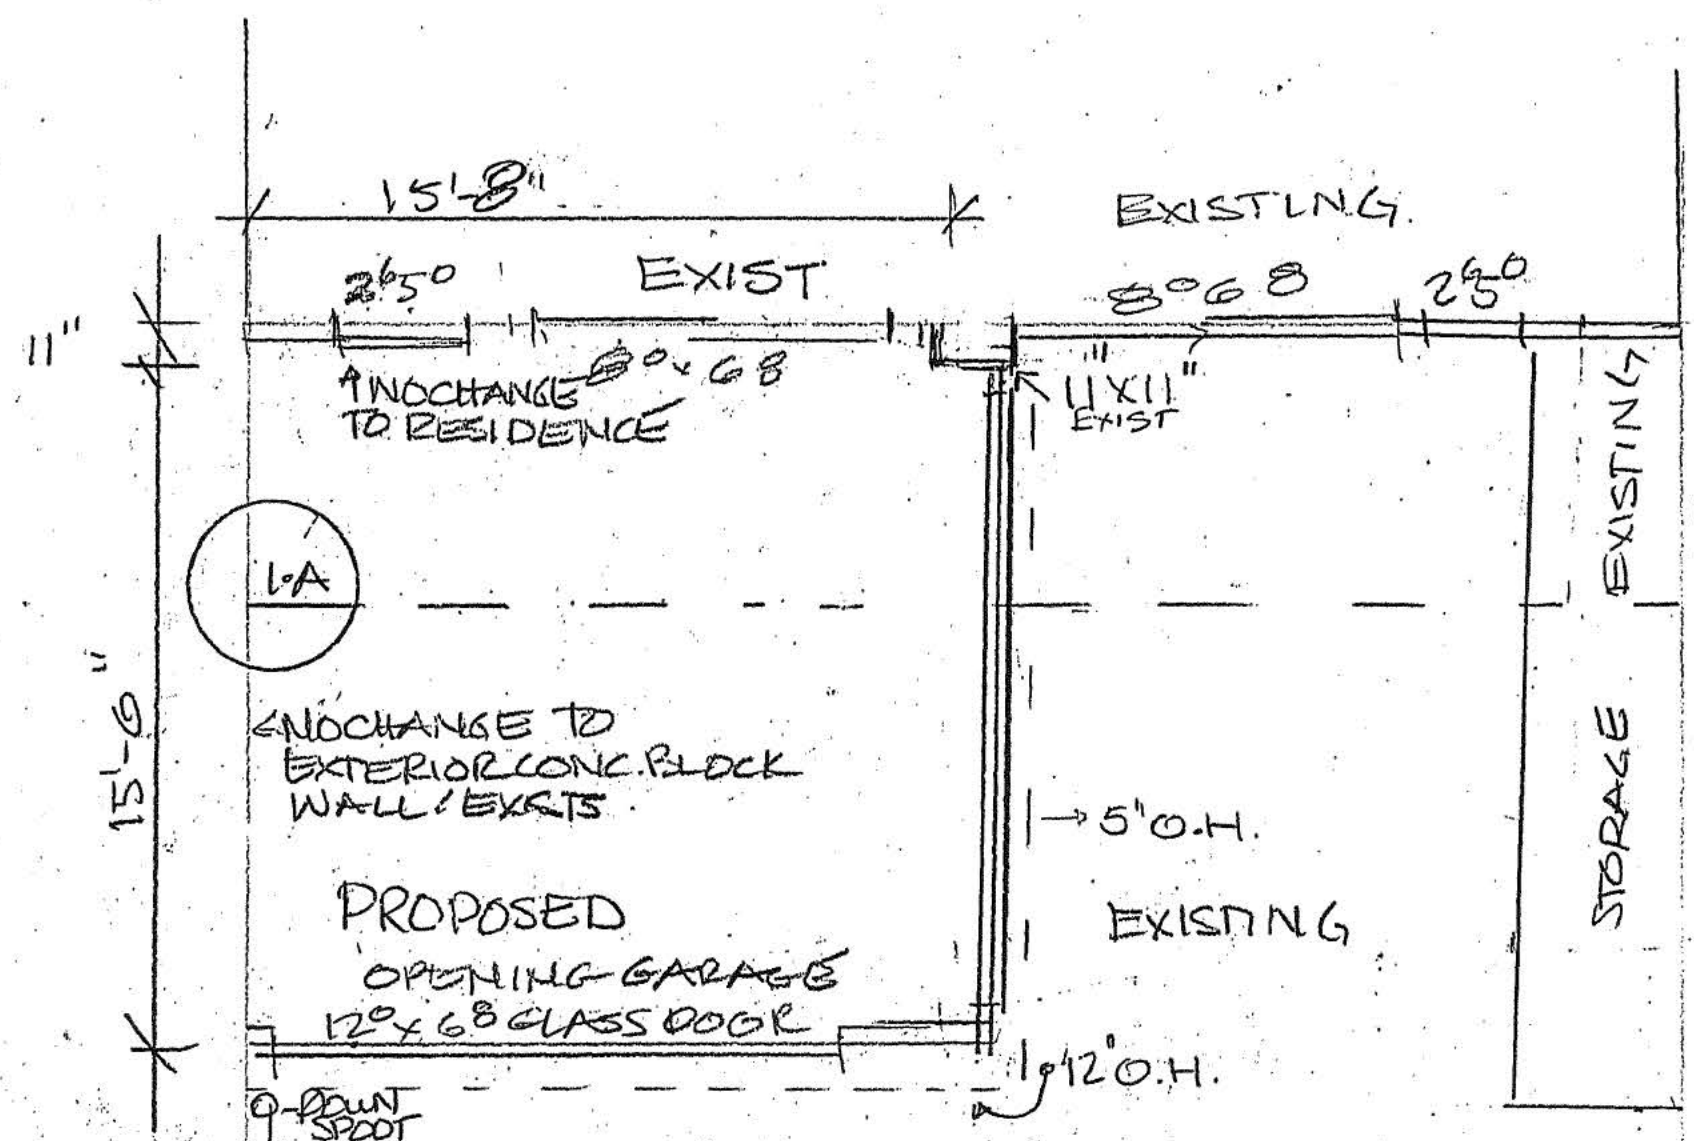 15'-8"
EXISTING.
2⁶5⁰
EXIST
8⁰ 6 8
2⁶5⁰
11"
6⁰ x 6 8
NO CHANGE
TO RESIDENCE
11"X11"
EXIST
EXISTING
1·A
15'-0"
<NO CHANGE TO
EXTERIOR CONC. BLOCK
WALL: EXISTS
STORAGE
→ 5" O.H.
PROPOSED
EXISTING
OPENING GARAGE
12⁰ x 6⁸ GLASS DOOR
12" O.H.
DOWN
SPOOT